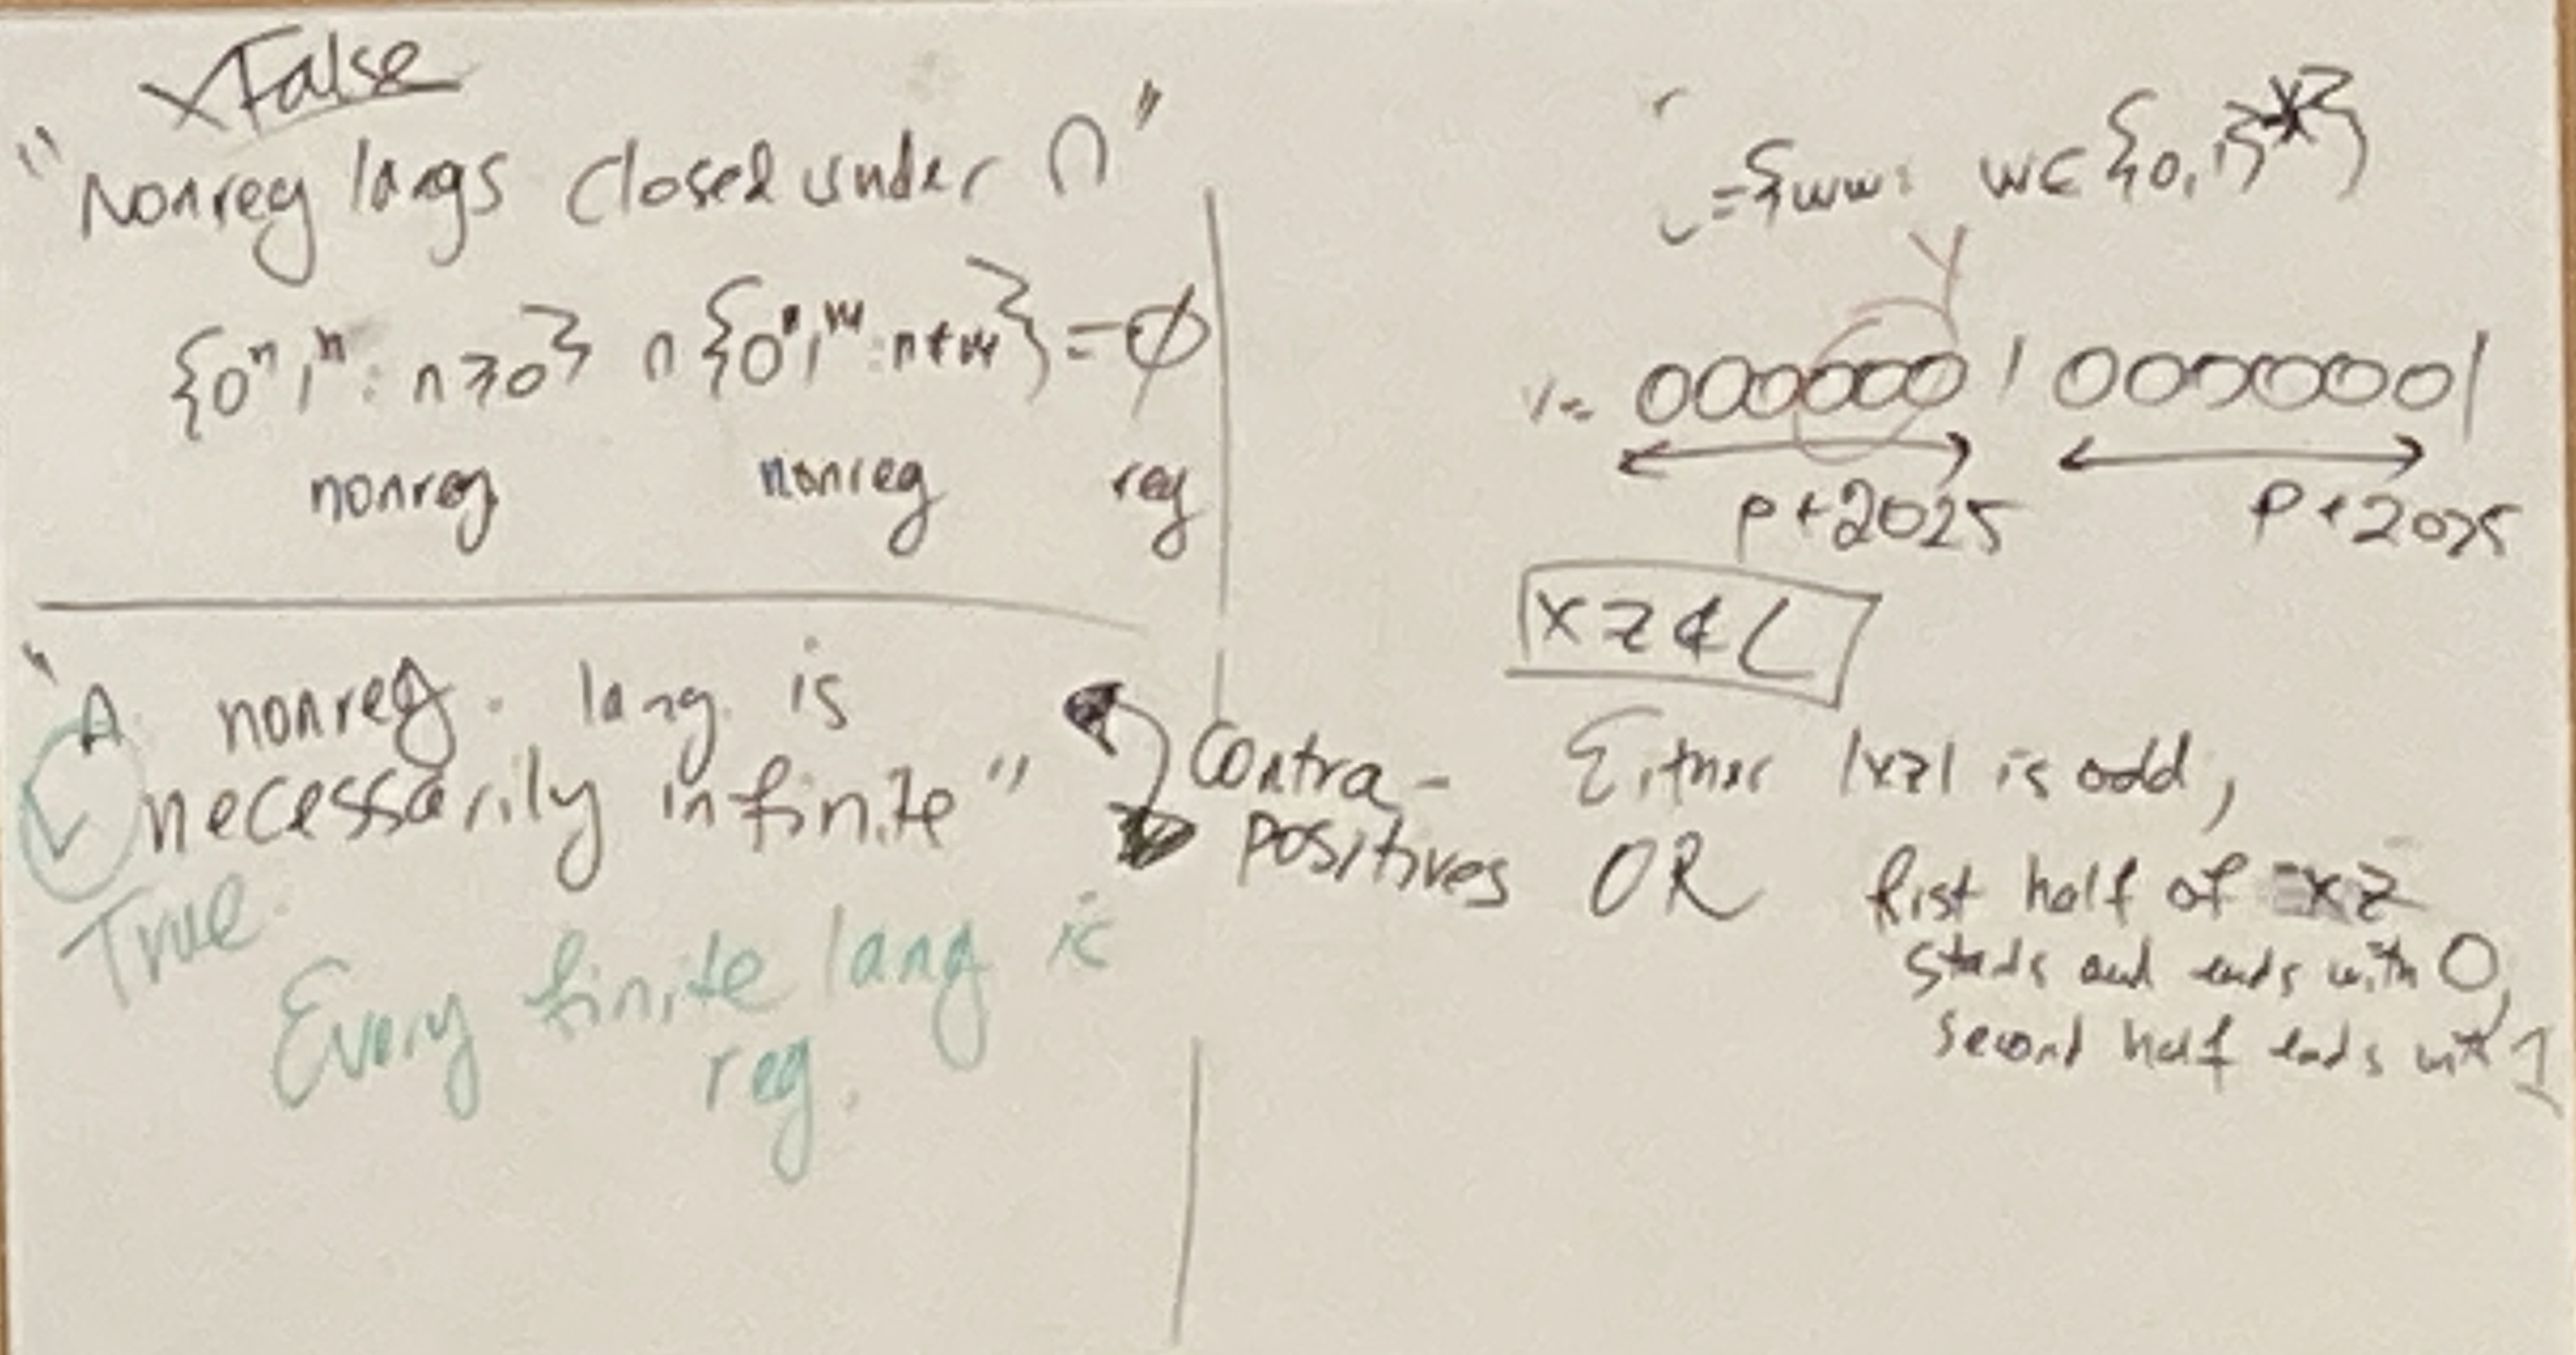 x False
"Nonreg langs closed under ∩"
{0ⁿ1ⁿ: n≥0} ∩ {0ⁿ1ᵐ: n≠m} = ∅
nonreg nonreg reg
"A nonreg. lang. is
necessarily infinite"
True.
Every finite lang is
reg.
Contra-
positives
= {ww: w∈{0,1}*}
Y
0000001 00000001
p+2025 p+2025
xz∉L
Either |xz| is odd,
OR first half of xz
starts and ends with 0,
second half ends with 1